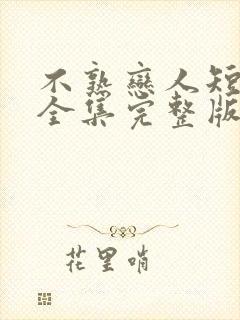 不熟戀人短
全集完整版
花里哨